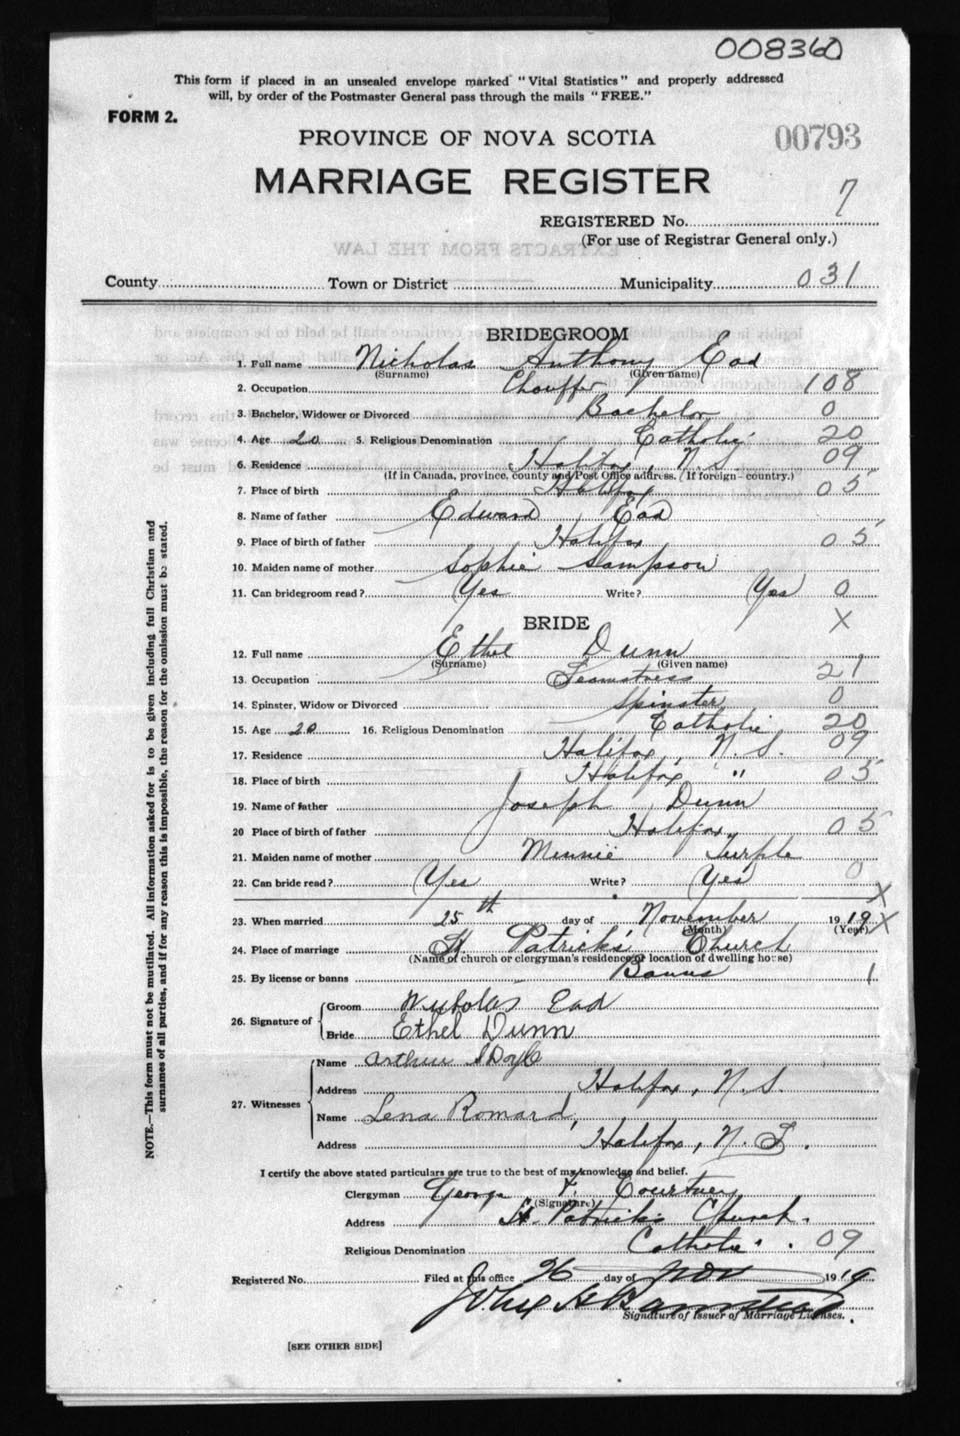 008360
This form if placed in an unsealed envelope marked "Vital Statistics" and properly addressed
will, by order of the Postmaster General pass through the mails "FREE."
FORM 2.
PROVINCE OF NOVA SCOTIA
00793
MARRIAGE REGISTER
7
REGISTERED No.
(For use of Registrar General only.)
County Town or District Municipality 031
BRIDEGROOM
1. Full name Nicholas Anthony Ead
(Surname) (Given name)
2. Occupation Chauffer 108
3. Bachelor, Widower or Divorced Bachelor 0
4. Age 20 5. Religious Denomination Catholic 20
6. Residence Halifax, N.S. 09
(If in Canada, province, county and Post Office address. If foreign—country.)
7. Place of birth Halifax 05
8. Name of father Edward Ead
9. Place of birth of father Halifax 05
10. Maiden name of mother Sophie Sampson
11. Can bridegroom read? Yes Write? Yes 0
BRIDE X
12. Full name Ethel Dunn
(Surname) (Given name)
13. Occupation Seamstress 21
14. Spinster, Widow or Divorced Spinster 0
15. Age 20 16. Religious Denomination Catholic 20
17. Residence Halifax, N.S. 09
18. Place of birth Halifax, " 05
19. Name of father Joseph Dunn
20 Place of birth of father Halifax 05
21. Maiden name of mother Minnie Turple
22. Can bride read? Yes Write? Yes 0
X
23. When married 25th day of November 1919 X
(Month) (Year)
24. Place of marriage St Patrick's Church
(Name of church or clergyman's residence or location of dwelling house)
25. By license or banns Banns 1
26. Signature of Groom Nicholas Ead
Bride Ethel Dunn
27. Witnesses Name Arthur Doyle
Address Halifax, N.S.
Name Lena Romard,
Address Halifax, N.S.
I certify the above stated particulars are true to the best of my knowledge and belief.
Clergyman George F. Courtney
(Signature)
Address St. Patrick's Church.
Religious Denomination Catholic. 09
Registered No. Filed at this office 26 day of Nov 1919
Signature of Issuer of Marriage Licenses.
[SEE OTHER SIDE]
NOTE.—This form must not be mutilated. All information asked for is to be given including full Christian and
surnames of all parties, and if for any reason this is impossible, the reason for the omission must be stated.